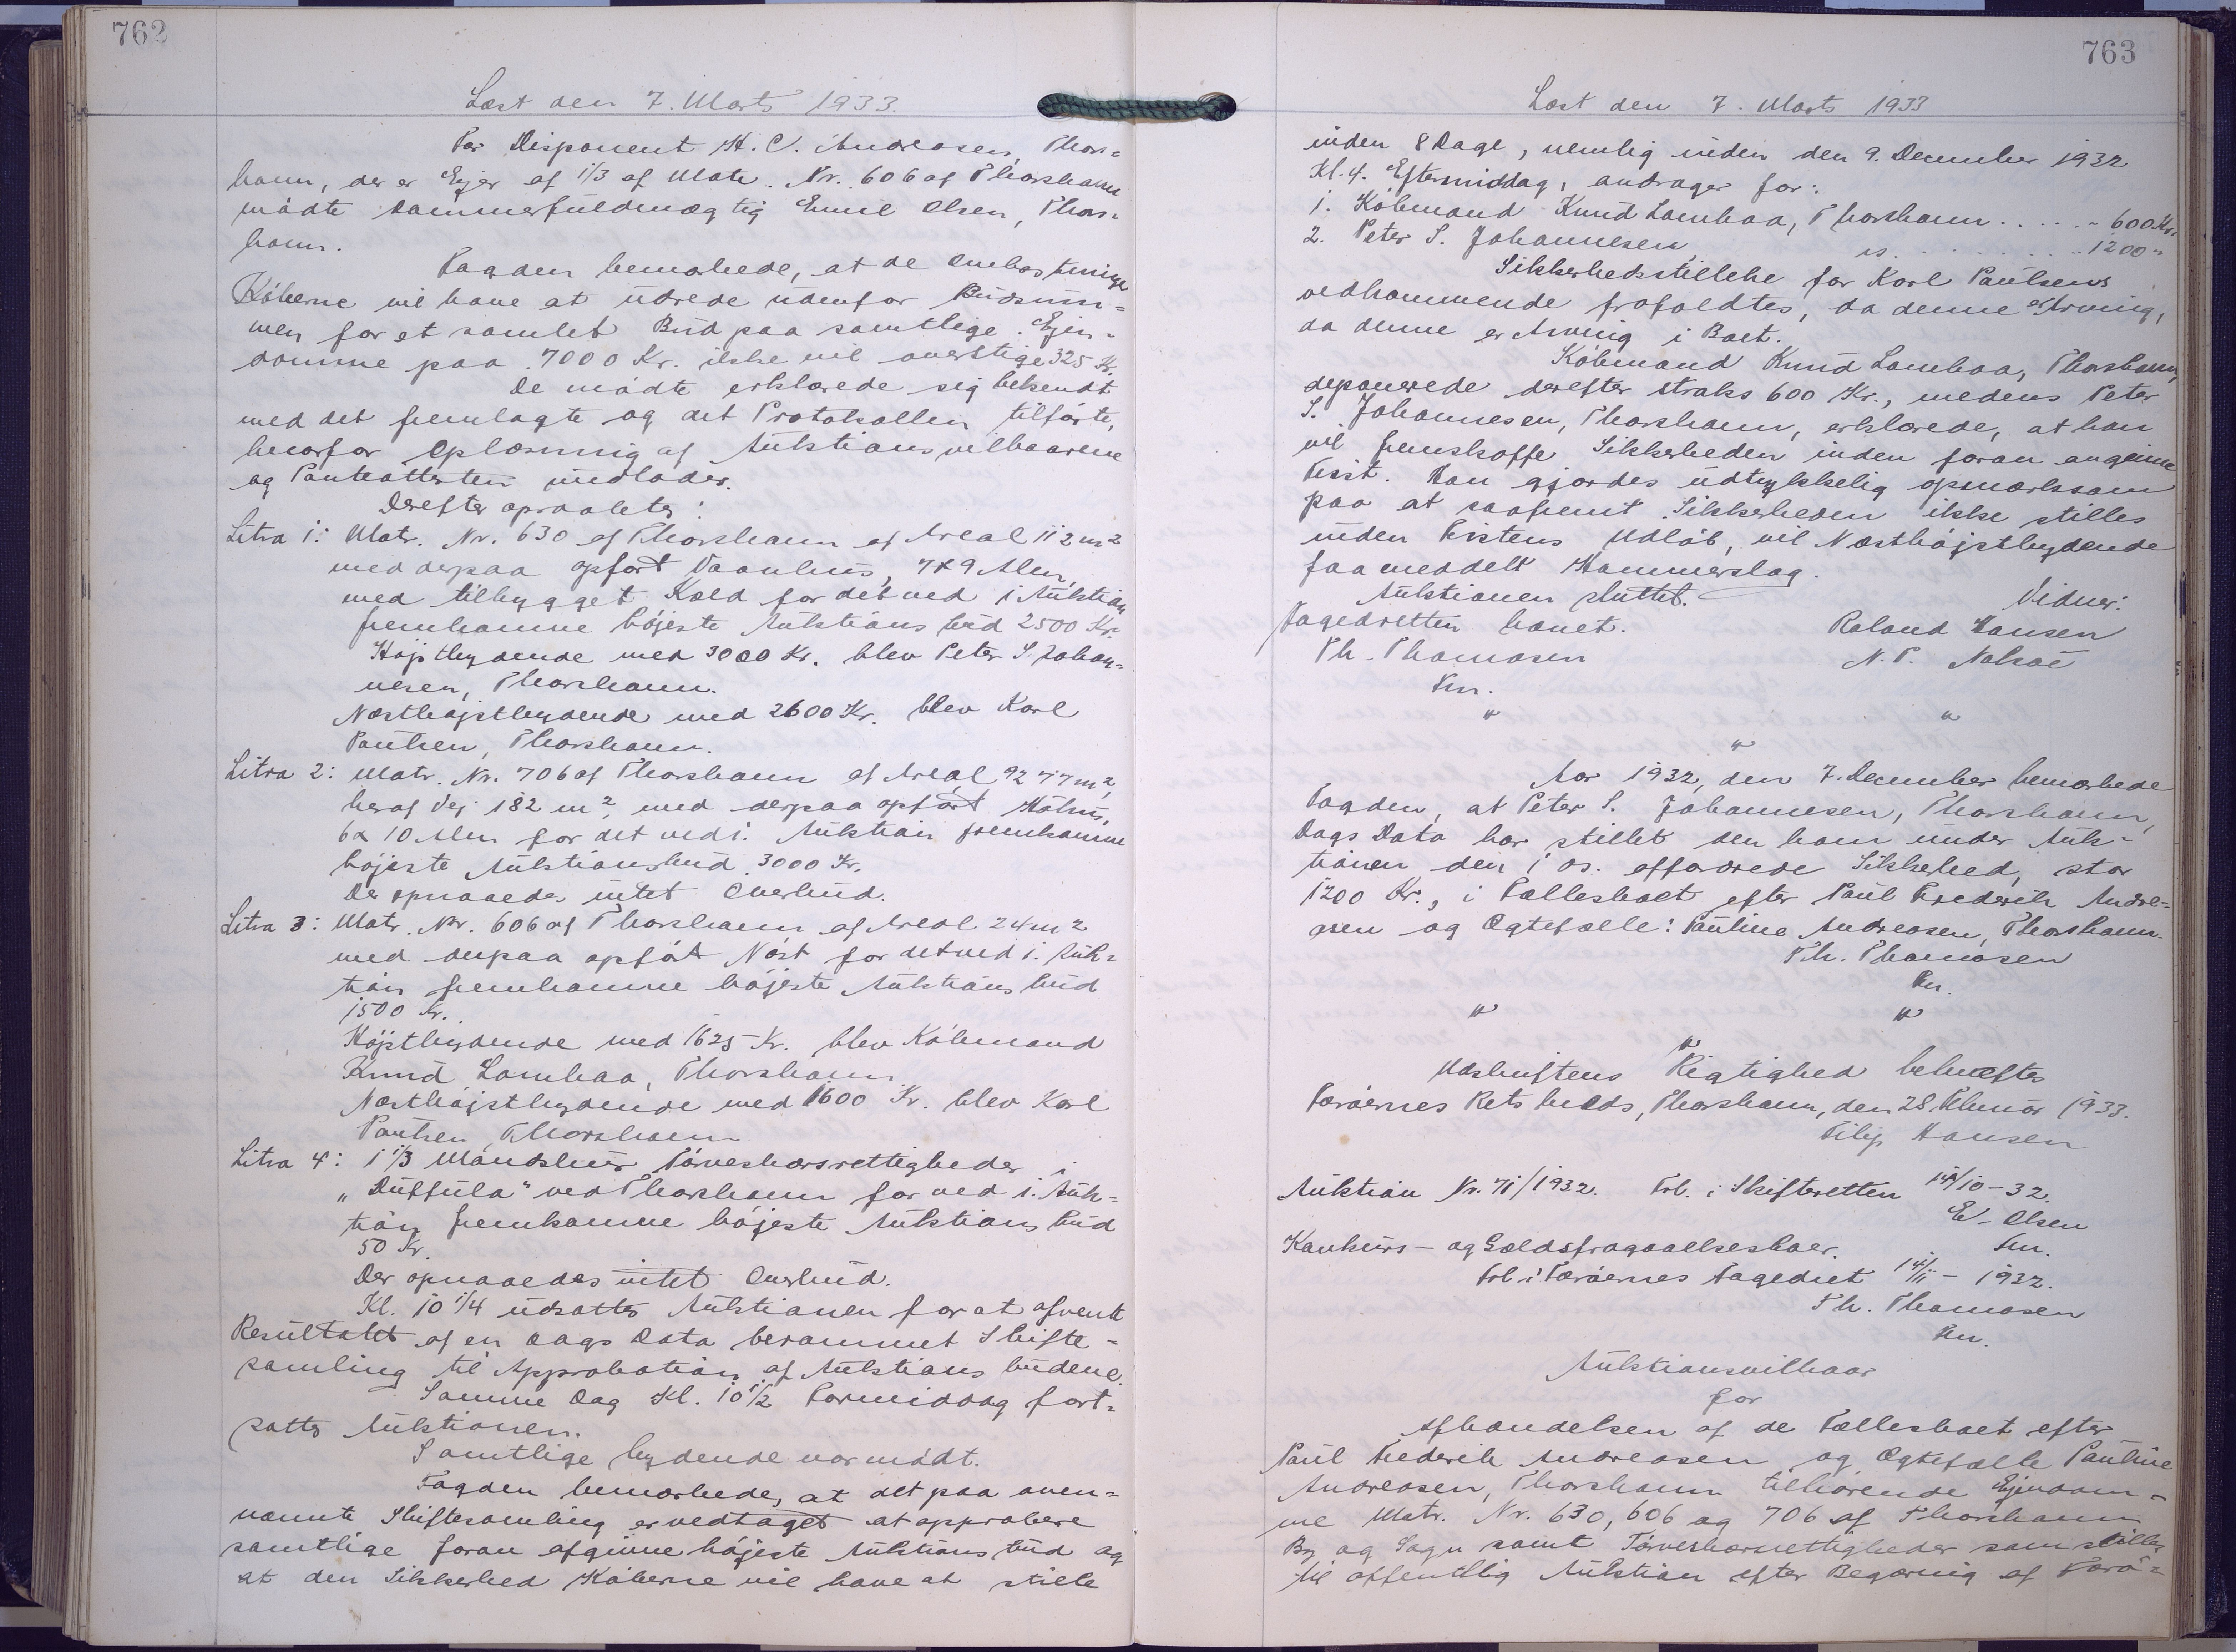 762
Læst den 7. Marts 1933.
For Disponent H. C. Andreasen, Thors=
havn, der er Ejer af 1/3 af Matr. Nr. 606 af Thorshavn
mødte Dommerfuldmægtig Emil Olsen, Thors=
havn.
Fogden bemærkede, at de Omkostninger
Køberne vil have at udrede udenfor Budsum=
men for et samlet Bud paa samtlige Ejen=
domme paa 7000 Kr. ikke vil overstige 325 Kr.
De mødte erklærede sig bekendt
med det fremlagte og det Protokollen tilførte,
hvorfor Oplæsning af Auktionsvilkaarene
og Panteattesten undlades.
Derefter opraabtes:
Litra 1: Matr. Nr. 630 af Thorshavn af Areal 112 m2
med derpaa opført Vaanhus, 7x9 Alen,
med tilbygget Kæld for det ved 1 Auktion
fremkomne højeste Auktionsbud 2500 Kr.
Højstbydende med 3000 Kr. blev Peter S. Johan=
nesen, Thorshavn.
Næsthøjstbydende med 2600 Kr. blev Karl
Poulsen, Thorshavn.
Litra 2: Matr. Nr. 706 af Thorshavn af Areal 9277 m2,
heraf Vej 182 m2, med derpaa opført Høhus,
6x10 Alen for det ved 1. Auktion fremkomne
højeste Auktionsbud 3000 Kr.
Der opnaaedes intet Overbud.
Litra 3: Matr. Nr. 606 af Thorshavn af Areal 24 m2
med derpaa opført Nøst for det ved 1. Auk=
tion fremkomne højeste Auktionsbud
1500 Kr.
Højstbydende med 1625 Kr. blev Købmand
Knud Lamhaa, Thorshavn.
Næsthøjstbydende med 1600 Kr. blev Karl
Poulsen, Thorshavn
Litra 4: 1 1/3 Mandshus Tørveskærsrettigheder i
"Duffula" ved Thorshavn for ved 1. Auk=
tion fremkomne højeste Auktionsbud
50 Kr.
Der opnaaedes intet Overbud.
Kl. 10 1/4 udsattes Auktionen for at afvente
Resultatet af en Dags Dato berammet Skifte=
samling til Approbation af Auktionsbudene.
Samme Dag Kl. 10 1/2 Formiddag fort=
sattes Auktionen.
Samtlige bydende var mødt.
Fogden bemærkede, at det paa oven=
nævnte Skiftesamling er vedtaget at approbere
samtlige foran afgivne højeste Auktionsbud og
at den Sikkerhed Køberne vil have at stille
763
Læst den 7. Marts 1933
inden 8 Dage, nemlig inden den 9. December 1932
Kl. 4. Eftermiddag, andrager for:
1. Købmand Knud Lamhaa, Thorshavn . . . . . 600 Kr.
2. Peter S. Johannesen is. . . . . . . 1200 "
Sikkerhedsstillelse for Karl Poulsens
vedkommende frafaldtes, da denne er Arving,
da denne er Arving i Boet.
Købmand Knud Lamhaa, Thorshavn,
deponerede derefter straks 600 Kr., medens Peter
S. Johannesen, Thorshavn, erklærede, at han
vil fremskaffe Sikkerheden inden foran angivne
Frist. Han gjordes udtrykkelig opmærksom
paa at saafremt Sikkerheden ikke stilles
inden Fristens Udløb, vil Næsthøjstbydende
faa meddelt Hammerslag.
Auktionen sluttet.
Vidner:
Fogedretten hævet. Roland Hansen
Th. Thomasen N. P. Nolsøe
Fm.
" "
"
Aar 1932, den 7. December bemærkede
Fogden, at Peter S. Johannesen, Thorshavn,
Dags Dato har stillet den ham under Auk=
tionen den 1 ds. affordrede Sikkerhed, stor
1200 Kr., i Fællesboet efter Poul Frederik Andre=
asen og Ægtefælle: Pauline Andreasen, Thorshavn.
Th. Thomasen
Fm.
" "
"
Udskriftens Rigtighed bekræftes
Færøernes Rets Kreds, Thorshavn, den 28. Februar 1933.
Filip Hansen
Auktion Nr. 71/1932. Frb. i Skifteretten 14/10-32.
E. Olsen
Fm.
Konkurs- og Gældsfragaaelsesboer.
Frb. i Færøernes Fogedret 14/11 - 1932.
Th. Thomasen
Fm.
Auktionsvilkaar
for
Afhændelsen af de Fællesboet efter
Poul Frederik Andreasen og Ægtefælle Pauline
Andreasen, Thorshavn tilhørende Ejendom=
me Matr. Nr. 630, 606 og 706 af Thorshavn
By og Sogn samt Tørveskærsrettigheder som stilles
til offentlig Auktion efter Begæring af Færø=